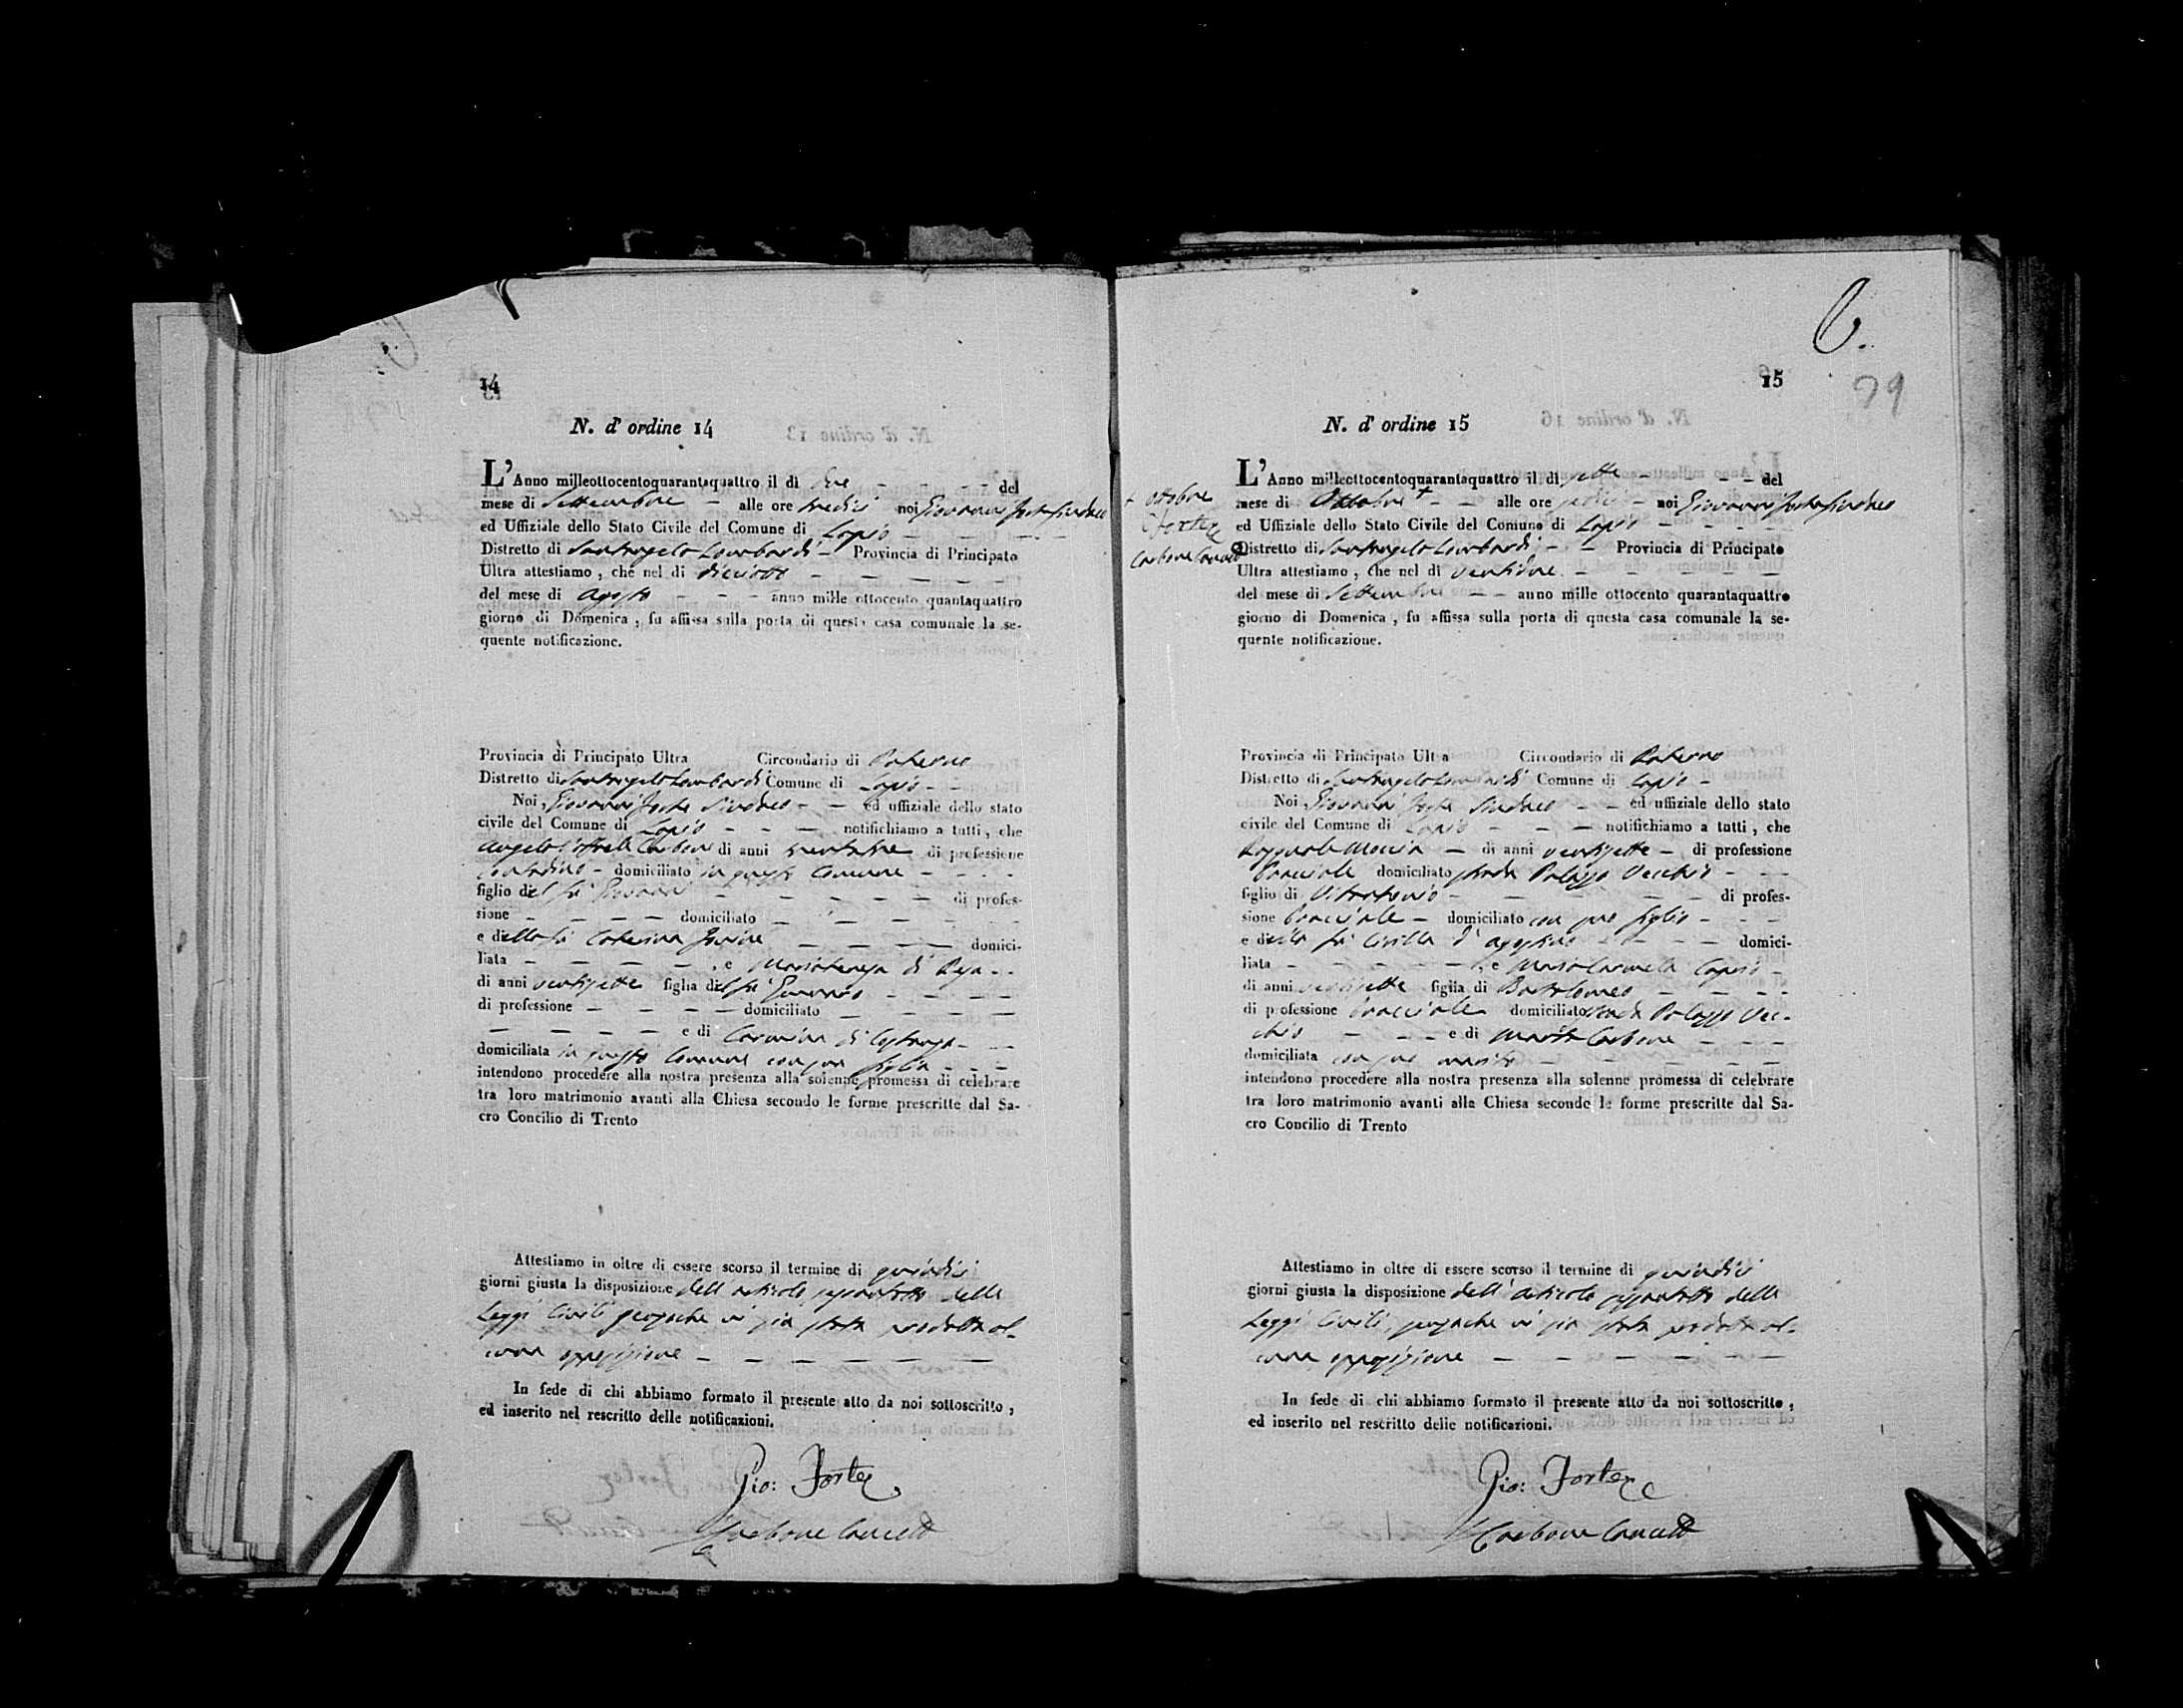 14
N. d' ordine 14
L'Anno milleottocentoquarantaquattro il dì due - - - - del
mese di Settembre - alle ore tredici noi Giovanni Forte Sindaco
ed Uffiziale dello Stato Civile del Comune di Lapio - - - -
Distretto di Santangelo Lombardi - Provincia di Principato
Ultra attestiamo, che nel dì dieciotto - - - - -
del mese di Agosto - - - anno mille ottocento quantaquattro
giorno di Domenica, fu affissa sulla porta di questa casa comunale la se-
quente notificazione.
Provincia di Principato Ultra Circondario di Paterno
Distretto di Santangelo Lombardi Comune di Lapio - -
Noi, Giovanni Forte Sindaco - - ed uffiziale dello stato
civile del Comune di Lapio - - - notifichiamo a tutti, che
Angelo Carbone di anni di professione
contadino - domiciliato in questo Comune - - - -
figlio del fu Giovanni - - - - - di profes-
sione - - - - domiciliato - - - - -
e della fu Caterina - - - - domici-
liata - - - - , e Mariateresa di - -
di anni ventisette figlia del fu - - - -
di professione - - - - domiciliato - - - -
- - - - e di Carmina di - - -
domiciliata in questo Comune con sua figlia - - -
intendono procedere alla nostra presenza alla solenne promessa di celebrare
tra loro matrimonio avanti alla Chiesa secondo le forme prescritte dal Sa-
cro Concilio di Trento
Attestiamo in oltre di essere scorso il termine di quindici
giorni giusta la disposizione dell'articolo sessantotto delle
Leggi Civili, senzache vi sia stata prodotta al-
cuna opposizione - - - - - - -
In fede di chi abbiamo formato il presente atto da noi sottoscritto,
ed inserito nel rescritto delle notificazioni.
Gio: Forte
Carbone Cancell
6.
15
99
N. d' ordine 15
L'Anno milleottocentoquarantaquattro il dì sette - - - - del
+ ottobre
Forte
Carbone Cancell
mese di Ottobre + - - alle ore sedici - noi Giovanni Forte Sindaco
ed Uffiziale dello Stato Civile del Comune di Lapio - - - -
Distretto di Santangelo Lombardi - - Provincia di Principato
Ultra attestiamo, che nel dì ventidue - - - - -
del mese di Settembre - - anno mille ottocento quarantaquattro
giorno di Domenica, fu affissa sulla porta di questa casa comunale la se-
quente notificazione.
Provincia di Principato Ultra Circondario di Paterno
Distretto di Santangelo Lombardi Comune di Lapio -
Noi, Giovanni Forte Sindaco - - ed uffiziale dello stato
civile del Comune di Lapio - - - notifichiamo a tutti, che
Pasquale Moccia - di anni ventisette - di professione
bracciale domiciliato strada Palazzo Vecchio - - -
figlio di Vitantonio - - - - - di profes-
sione bracciale - domiciliato con suo figlio - - -
e della fu d'Agostino - - - - domici-
liata - - - - - , e Mariacarmela Caputo -
di anni ventisette figlia di Bartolomeo - - - -
di professione bracciale domiciliato strada Palazzo Vec-
chio - - - e di Marta Carbone - - -
domiciliata con suo marito - - - - - -
intendono procedere alla nostra presenza alla solenne promessa di celebrare
tra loro matrimonio avanti alla Chiesa secondo le forme prescritte dal Sa-
cro Concilio di Trento
Attestiamo in oltre di essere scorso il termine di quindici
giorni giusta la disposizione dell'articolo sessantotto delle
Leggi Civili, senzache vi sia stata prodotta al-
cuna opposizione - - - - - -
In fede di chi abbiamo formato il presente atto da noi sottoscritto,
ed inserito nel rescritto delle notificazioni.
Gio: Forte
Carbone Cancell